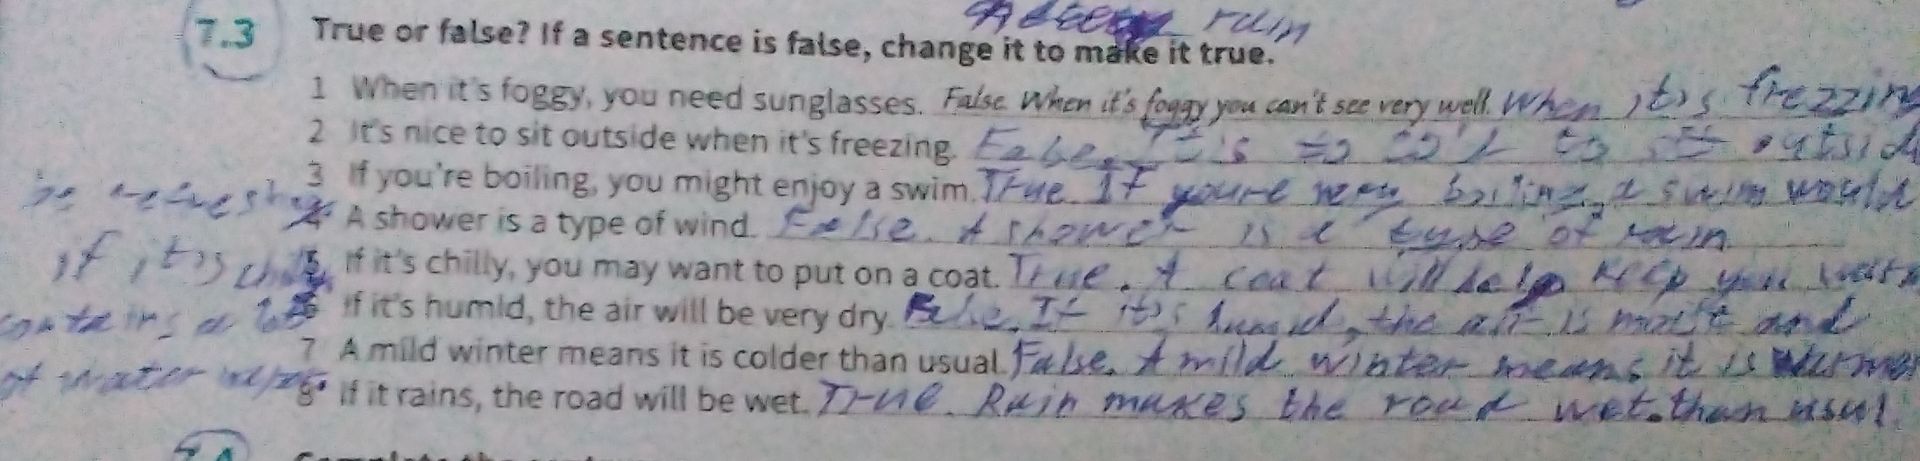 rain
7.3 True or false? If a sentence is false, change it to make it true.
1 When it's foggy, you need sunglasses. False. When it's foggy you can't see very well. When it's frezzing
2 It's nice to sit outside when it's freezing. False. It's to to sit outsid
3 If you're boiling, you might enjoy a swim. True. If you're very boiling, a swim would
be refreshing
4 A shower is a type of wind. False. A shower is a type of rain
5 If it's chilly, you may want to put on a coat. True. A coat will help keep you warm
if it's chilly
6 If it's humid, the air will be very dry. False. If it's humid, the air is moist and
contains a lot
7 A mild winter means it is colder than usual. False. A mild winter means it is warmer
of water
8 If it rains, the road will be wet. True. Rain makes the road wet. than usul.